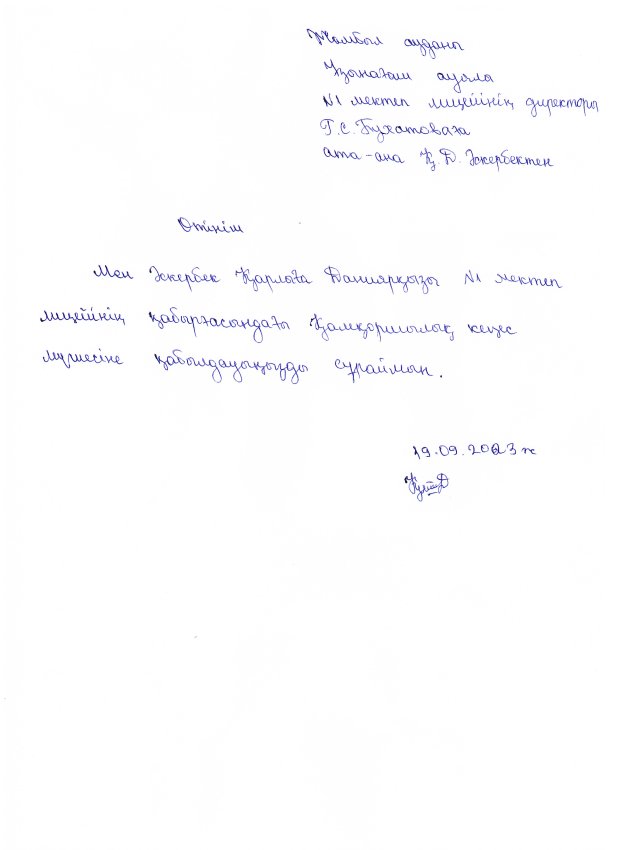 Жамбыл ауданы
Ұзынағаш ауылы
№1 мектеп лицейінің директоры
Г.С. Бухатоваға
ата-ана Қ.Д. Әскербектен
Өтініш
Мен Әскербек Қарлыға Даниярқызы №1 мектеп
лицейнің қабырғасындағы Қамқоршылық кеңес
мүшесіне қабылдауыңызды сұраймын.
19.09.2023 ж